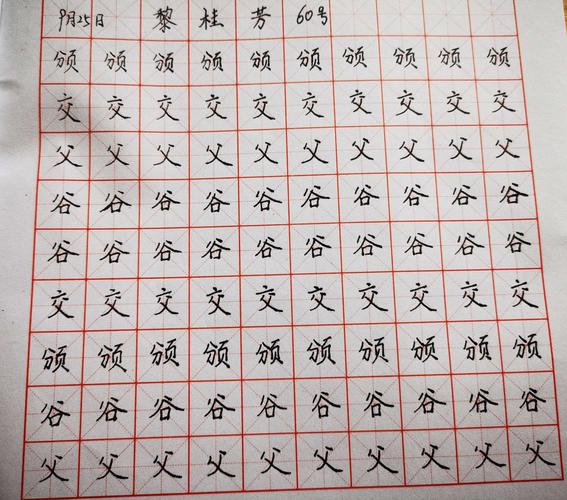 9月25日 黎桂芳 60号
颁颁颁颁颁颁颁颁颁颁
交交交交交交交交交交
父父父父父父父父父父
谷谷谷谷谷谷谷谷谷谷
谷谷谷谷谷谷谷谷谷谷
交交交交交交交交交交
颁颁颁颁颁颁颁颁颁颁
谷谷谷谷谷谷谷谷谷谷
父父父父父父父父父父